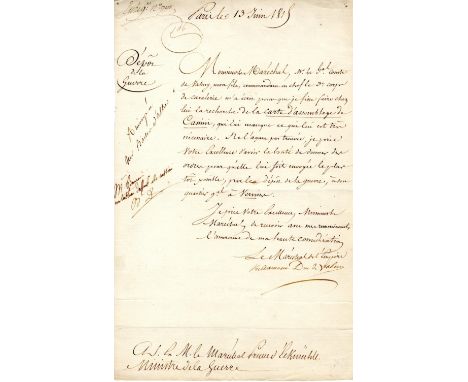 Paris le 13 Juin 1815
Dépôt
de la
Guerre
Monsieur le Maréchal, Mr. le Gal. Comte
de Valmy, mon fils, commandant en chef le 3e corps
de cavalerie m'a écrit pour que je fisse faire chez
lui la recherche de la carte d'assemblage de
Cassini, qui lui manque et qui lui est très
nécessaire. Ne l'ayant pas trouvée, je prie
Votre Excellence d'avoir la bonté de donner des
ordres pour qu'elle lui soit envoyée le plus
tôt possible, par le dépôt de la guerre, à son
quartier gal à Vervins
Je prie Votre Excellence, Monsieur le
Maréchal, de recevoir avec mes remerciements
l'assurance de ma haute considération
Le Maréchal de l'Empire
Kellermann Duc de Valmy
A S. Ex. M. le Maréchal Prince d'Eckmühl
Ministre de la Guerre